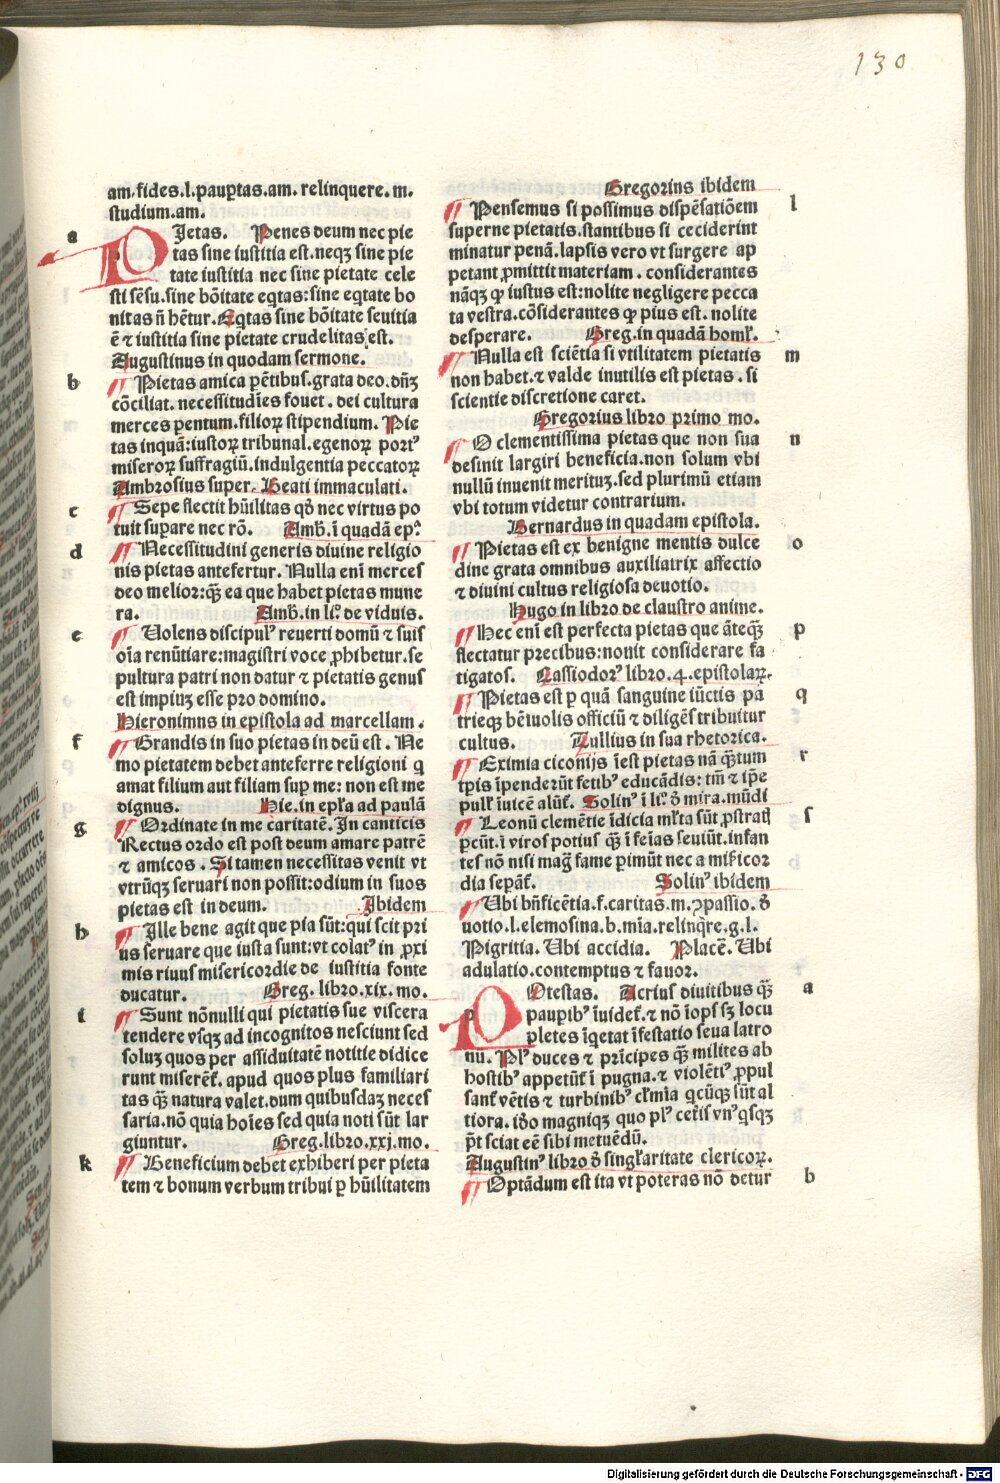 130
am.fides.l.paup̱tas.am. relinquere. m.
studium.am.
a
PJetas. Penes deum nec pie
tas sine iustitia est.neqꝫ sine pie
tate iustitia nec sine pietate cele
sti sēsu.sine bōitate eq̄tas:sine eq̄tate bo
nitas n̄ hētur.Eq̄tas sine bōitate seuitia
ē ⁊ iustitia sine pietate crudelitas est.
Augustinus in quodam sermone.
b
Pietas amica pētibus.grata deo.dn̄ꝫ
cōciliat.necessitudīes fouet. dei cultura
merces ꝑentum.filioꝝ stipendium. Pie
tas inquā:iustoꝝ tribunal.egenoꝝ portꝰ
miseroꝝ suffragiū.indulgentia peccatoꝝ
Ambrosius super. Beati immaculati.
c
Sepe flectit hūilitas qđ nec virtus po
tuit suꝑare nec rō. Amb.ī quadā ep̄.
d
Necessitudini generis diuine religio
nis pietas antefertur. Nulla enī merces
deo melior:qꝫ ea que habet pietas mune
ra. Amb.in li.° de viduis.
e
Uolens discipulꝰ reuerti domū ⁊ suis
oīa renūtiare:magistri voce ꝓhibetur.se
pultura patri non datur ⁊ pietatis genus
est impiuꝫ esse pro domino.
Hieronimns in epistola ad marcellam.
f
Grandis in suo pietas in deū est. Ne
mo pietatem debet anteferre religioni q
amat filium aut filiam suꝑ me: non est me
dignus. Hie.in epl̄a ad paulā
g
Ordinate in me caritatē. In canticis
Rectus ordo est post deum amare patrē
⁊ amicos. Si tamen necessitas venit vt
vtrūqꝫ seruari non possit:odium in suos
pietas est in deum. Ibidem
h
Ille bene agit que pia sūt:qui scit pri
us seruare que iusta sunt:vt colatꝰ in ꝓxi
mis riuus misericordie de iustitia fonte
ducatur. Greg. libro.xix. mo.
i
Sunt nōnulli qui pietatis sue viscera
tendere vsqꝫ ad incognitos nesciunt sed
soluꝫ quos per assiduitatē notitie didice
runt miserēt̄. apud quos plus familiari
tas q̄ꝫ natura valet.dum quibusdaꝫ neces
saria.nō quia hoīes sed quia noti sūt lar
giuntur. Greg.libro.xxj.mo.
k
Beneficium debet exhiberi per pieta
tem ⁊ bonum verbum tribui ꝑ hūilitatem
Gregorins ibidem
l
Pensemus si possimus dispēsatiōem
superne pietatis.stantibus si ceciderint
minatur penā.lapsis vero vt surgere ap
petant ꝓmittit materiam. considerantes
nāqꝫ ꝙ iustus est:nolite negligere pecca
ta vestra.cōsiderantes ꝙ pius est. nolite
desperare. Greg.in quadā homl̄.
m
Nulla est sciētia si vtilitatem pietatis
non habet.⁊ valde inutilis est pietas. si
scientie discretione caret.
Gregorius libro primo mo.
n
O clementissima pietas que non sua
desinit largiri beneficia.non solum vbi
nullū inuenit merituꝫ.sed plurimū etiam
vbi totum videtur contrarium.
Bernardus in quadam epistola.
o
Pietas est ex benigne mentis dulce
dine grata omnibus auxiliatrix affectio
⁊ diuini cultus religiosa deuotio.
Hugo in libro de claustro anime.
p
Hec enī est perfecta pietas que āteq̄ꝫ
flectatur precibus:nouit considerare fa
tigatos. Cassiodorꝰ libro.4.epistolaꝝ.
q
Pietas est ꝑ quā sanguine iūctis pa
trieqꝫ bēiuolis officiū ⁊ diligēs tribuitur
cultus. Tullius in sua rhetorica.
r
Eximia ciconijs īest pietas nā q̄ꝫtum
tꝑis īpenderūt fetibꝰ educādis: tm̄ ⁊ īpe
pull̄ īuicē alūt̄. Solinꝰ ī li.° đ mira.mūdi
s
Leonū clemētie īdicia ml̄ta sūt,ꝓstratꝭ
ꝑcūt.ī viros potius q̄ꝫ ī feīas seuiūt.infan
tes nō nisi maḡ fame ꝑimūt nec a mīēicor
dia sepāt̄. Solinꝰ ibidem
Ubi bn̄ficētia.f.caritas.m.ꝯpassio. đ
uotio.l.elemosina.b.mīa.relinq̄re.g.l.
Pigritia. Ubi accidia. Placē. Ubi
adulatio.contemptus ⁊ fauor.
a
POtestas. Acrius diuitibus q̄ꝫ
pauꝑibꝰ īuidet̄.⁊ nō īops sꝫ locu
pletes īq̄etat īfestatio seua latro
nū. Plꝰ duces ⁊ prīcipes q̄ꝫ milites ab
hostibꝰ appetūt̄ ī pugna.⁊ violētiꝰ ꝓpul
sant̄ vētis ⁊ turbinibꝰ cl̄mīa qcūqꝫ sūt al
tiora. iđo magniqꝫ quo plꝰ cet̄is vnꝰ qsqꝫ
p̄t sciat eē sibi metuēdū.
Augustinꝰ libro đ singl̄aritate clericoꝝ.
b
Optādum est ita vt poteras nō detur
Digitalisierung gefördert durch die Deutsche Forschungsgemeinschaft - DFG